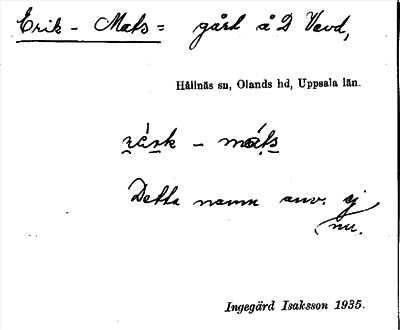 Erik - Mats = gård å D Vavd,
Hållnäs sn, Olands hd, Uppsala län.
- mats
Detta namn anv. ej
nu.
Ingegärd Isaksson 1935.